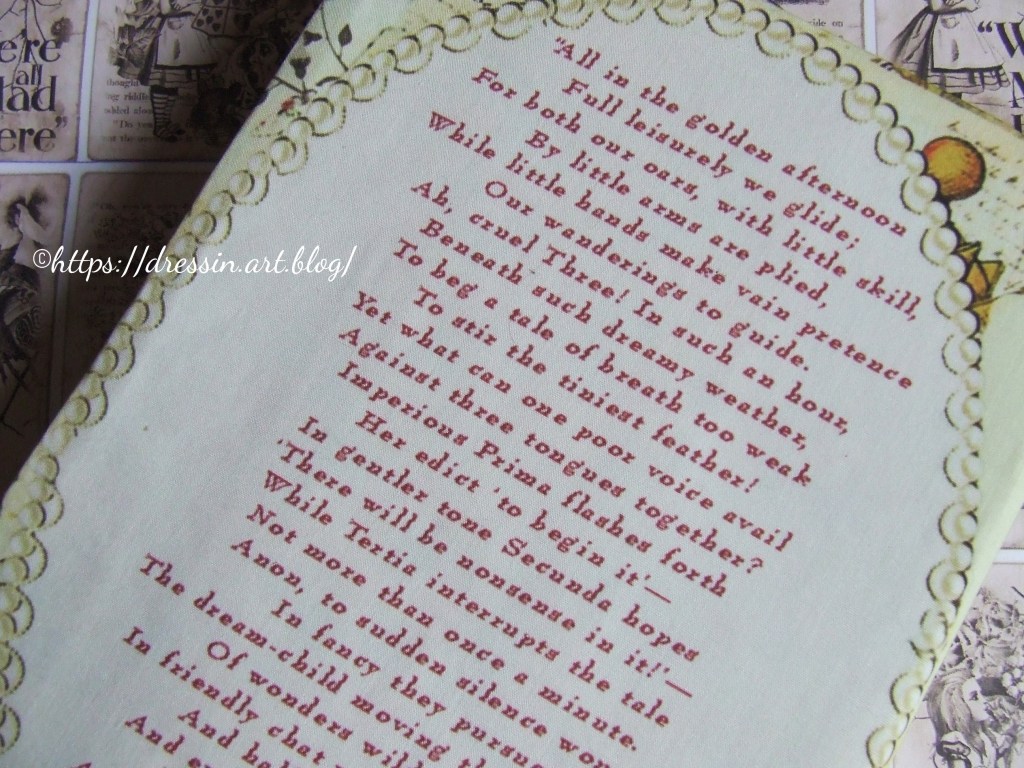 "All in the golden afternoon
Full leisurely we glide;
For both our oars, with little skill,
By little arms are plied,
While little hands make vain pretence
Our wanderings to guide.
Ah, cruel Three! In such an hour,
Beneath such dreamy weather,
To beg a tale of breath too weak
To stir the tiniest feather!
Yet what can one poor voice avail
Against three tongues together?
Imperious Prima flashes forth
Her edict 'to begin it'—
In gentler tone Secunda hopes
'There will be nonsense in it!'—
While Tertia interrupts the tale
Not more than once a minute.
Anon, to sudden silence won
In fancy they pursu
The dream-child moving th
Of wonders wil
In friendly chat
And
And
©https://dressin.art.blog/
ere
all
ad
ere"